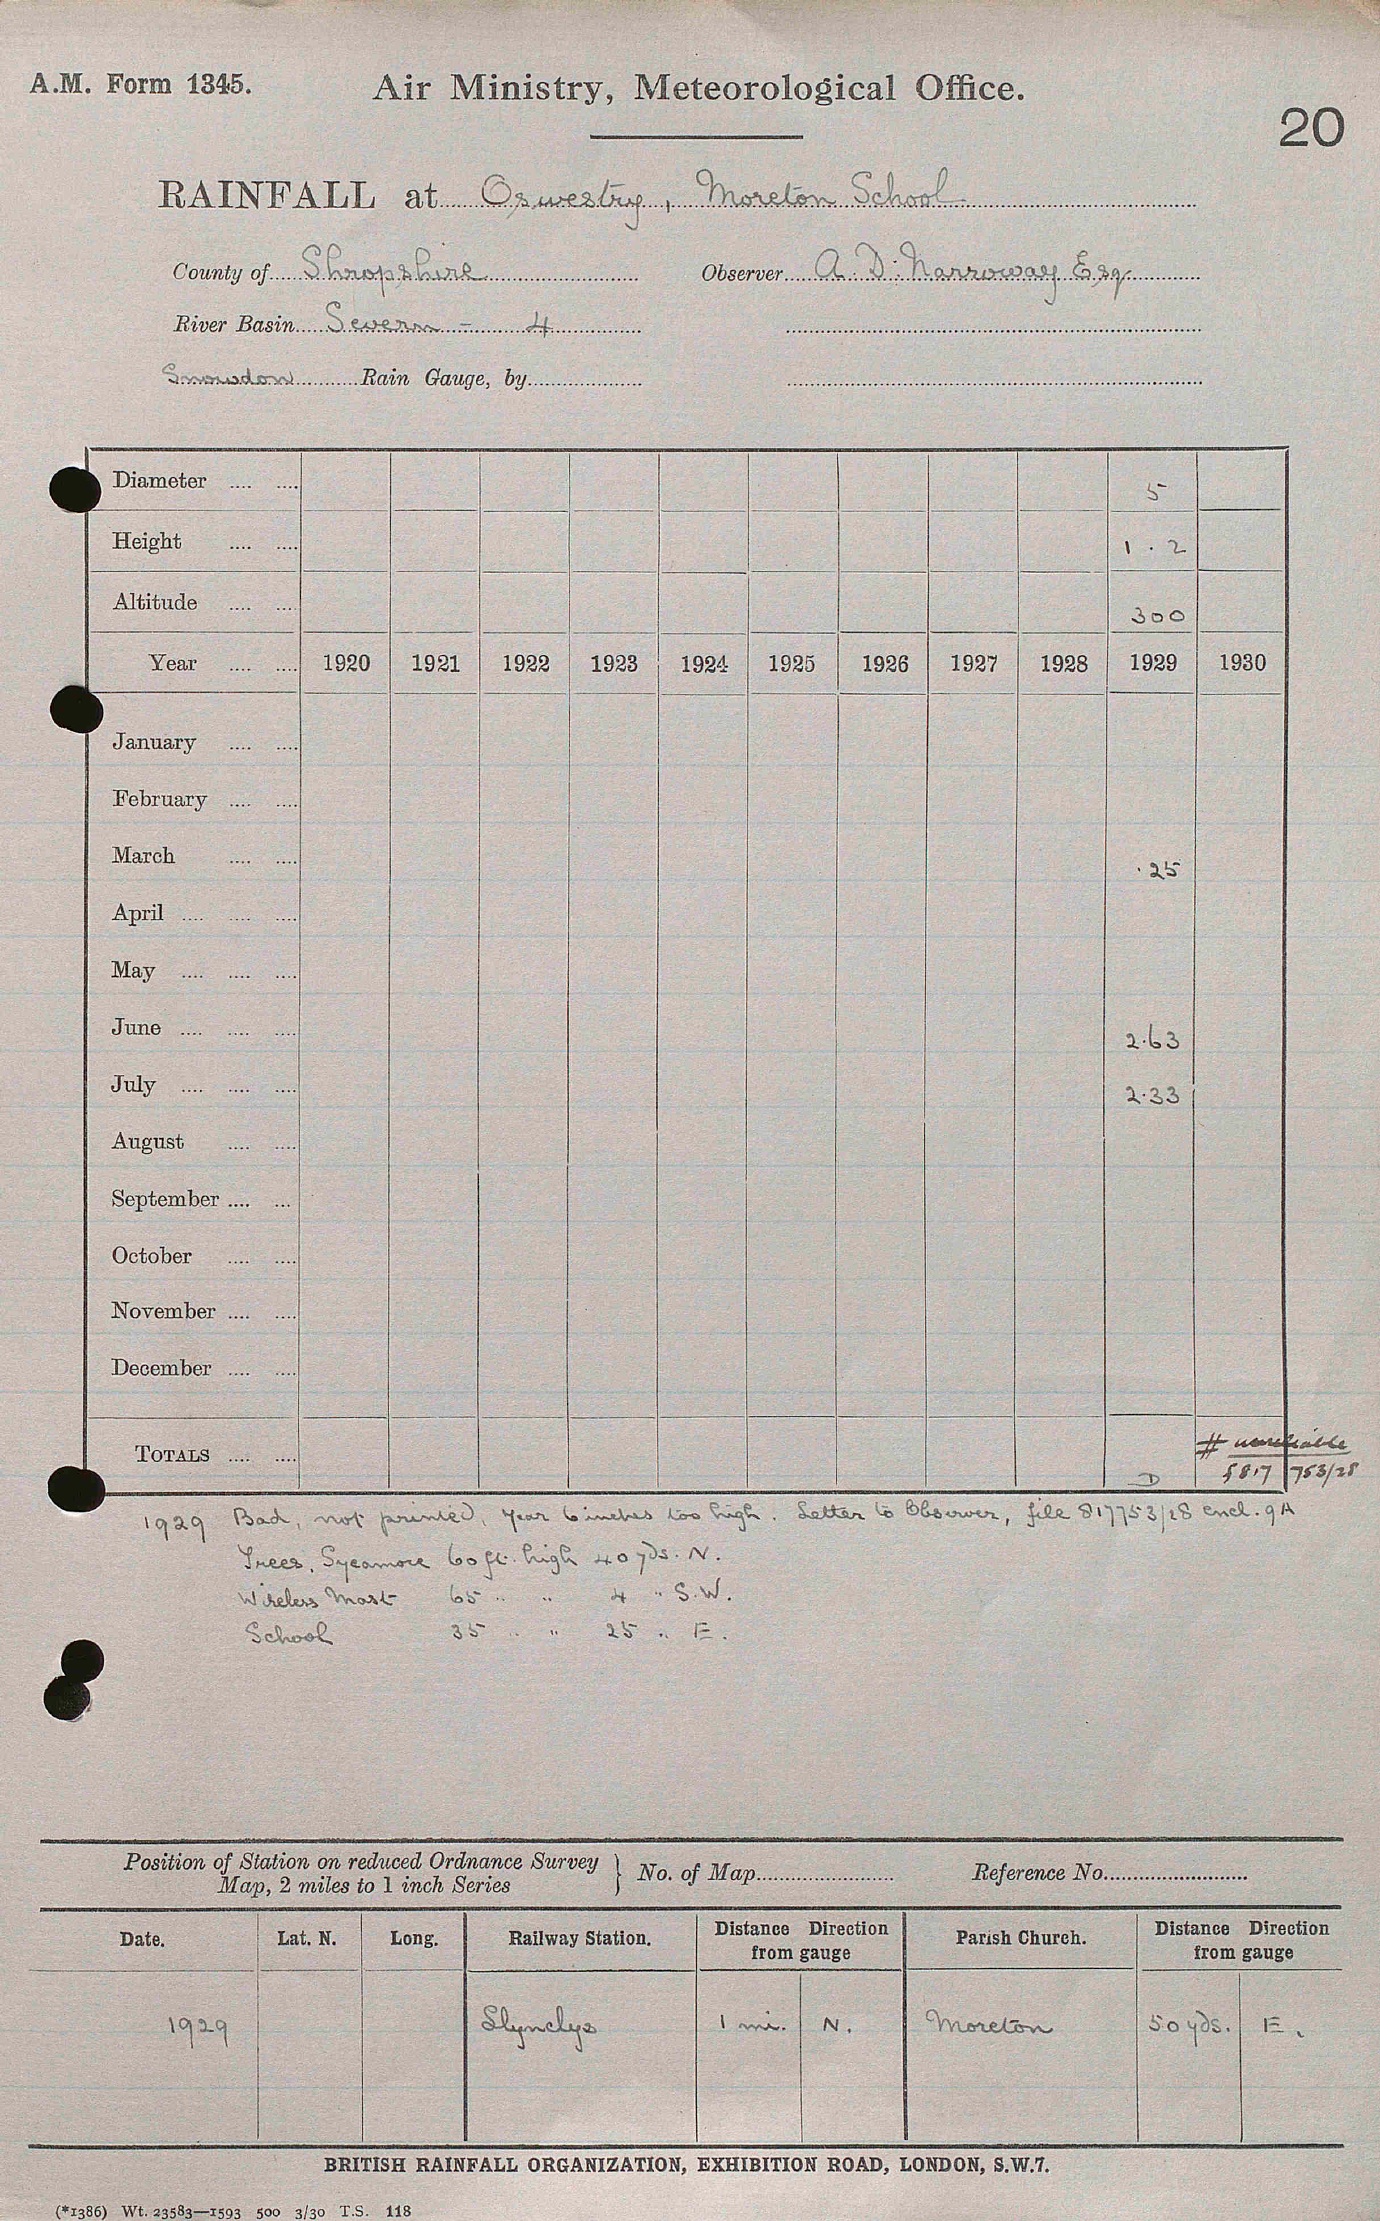 A.M. Form 1345.
Air Ministry, Meteorological Office.
20
RAINFALL at Oswestry, Moreton School
County of Shropshire Observer A. D. Narroway Esq.
River Basin Severn - 4
Snowdon Rain Gauge, by
Diameter 5
Height 1 . 2
Altitude 300
Year 1920 1921 1922 1923 1924 1925 1926 1927 1928 1929 1930
January
February
March .25
April
May
June 2.63
July 2.33
August
September
October
November
December
# unreliable
TOTALS D 817 753/28
1929 Bad, not printed, year 6 inches too high. Letter to Observer, file 817753/28 encl. 9A
Trees, Sycamore 60 ft. high 40 yds. N.
Wireless Mast 65 " " 4 " S.W.
School 35 " " 25 " E.
Position of Station on reduced Ordnance Survey
Map, 2 miles to 1 inch Series } No. of Map Reference No.
Date. Lat. N. Long. Railway Station. Distance Direction from gauge Parish Church. Distance Direction from gauge
1929 Llynclys 1 mi. N. Moreton 50 yds. E.
BRITISH RAINFALL ORGANIZATION, EXHIBITION ROAD, LONDON, S.W.7.
(*1386) Wt. 23583—1593 500 3/30 T.S. 118